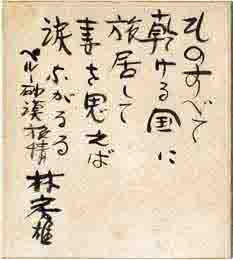 そのすべて
乾ける国に
旅居して
妻を思えば
涙ぶがるる
ペルー砂漠旅情
林
雄